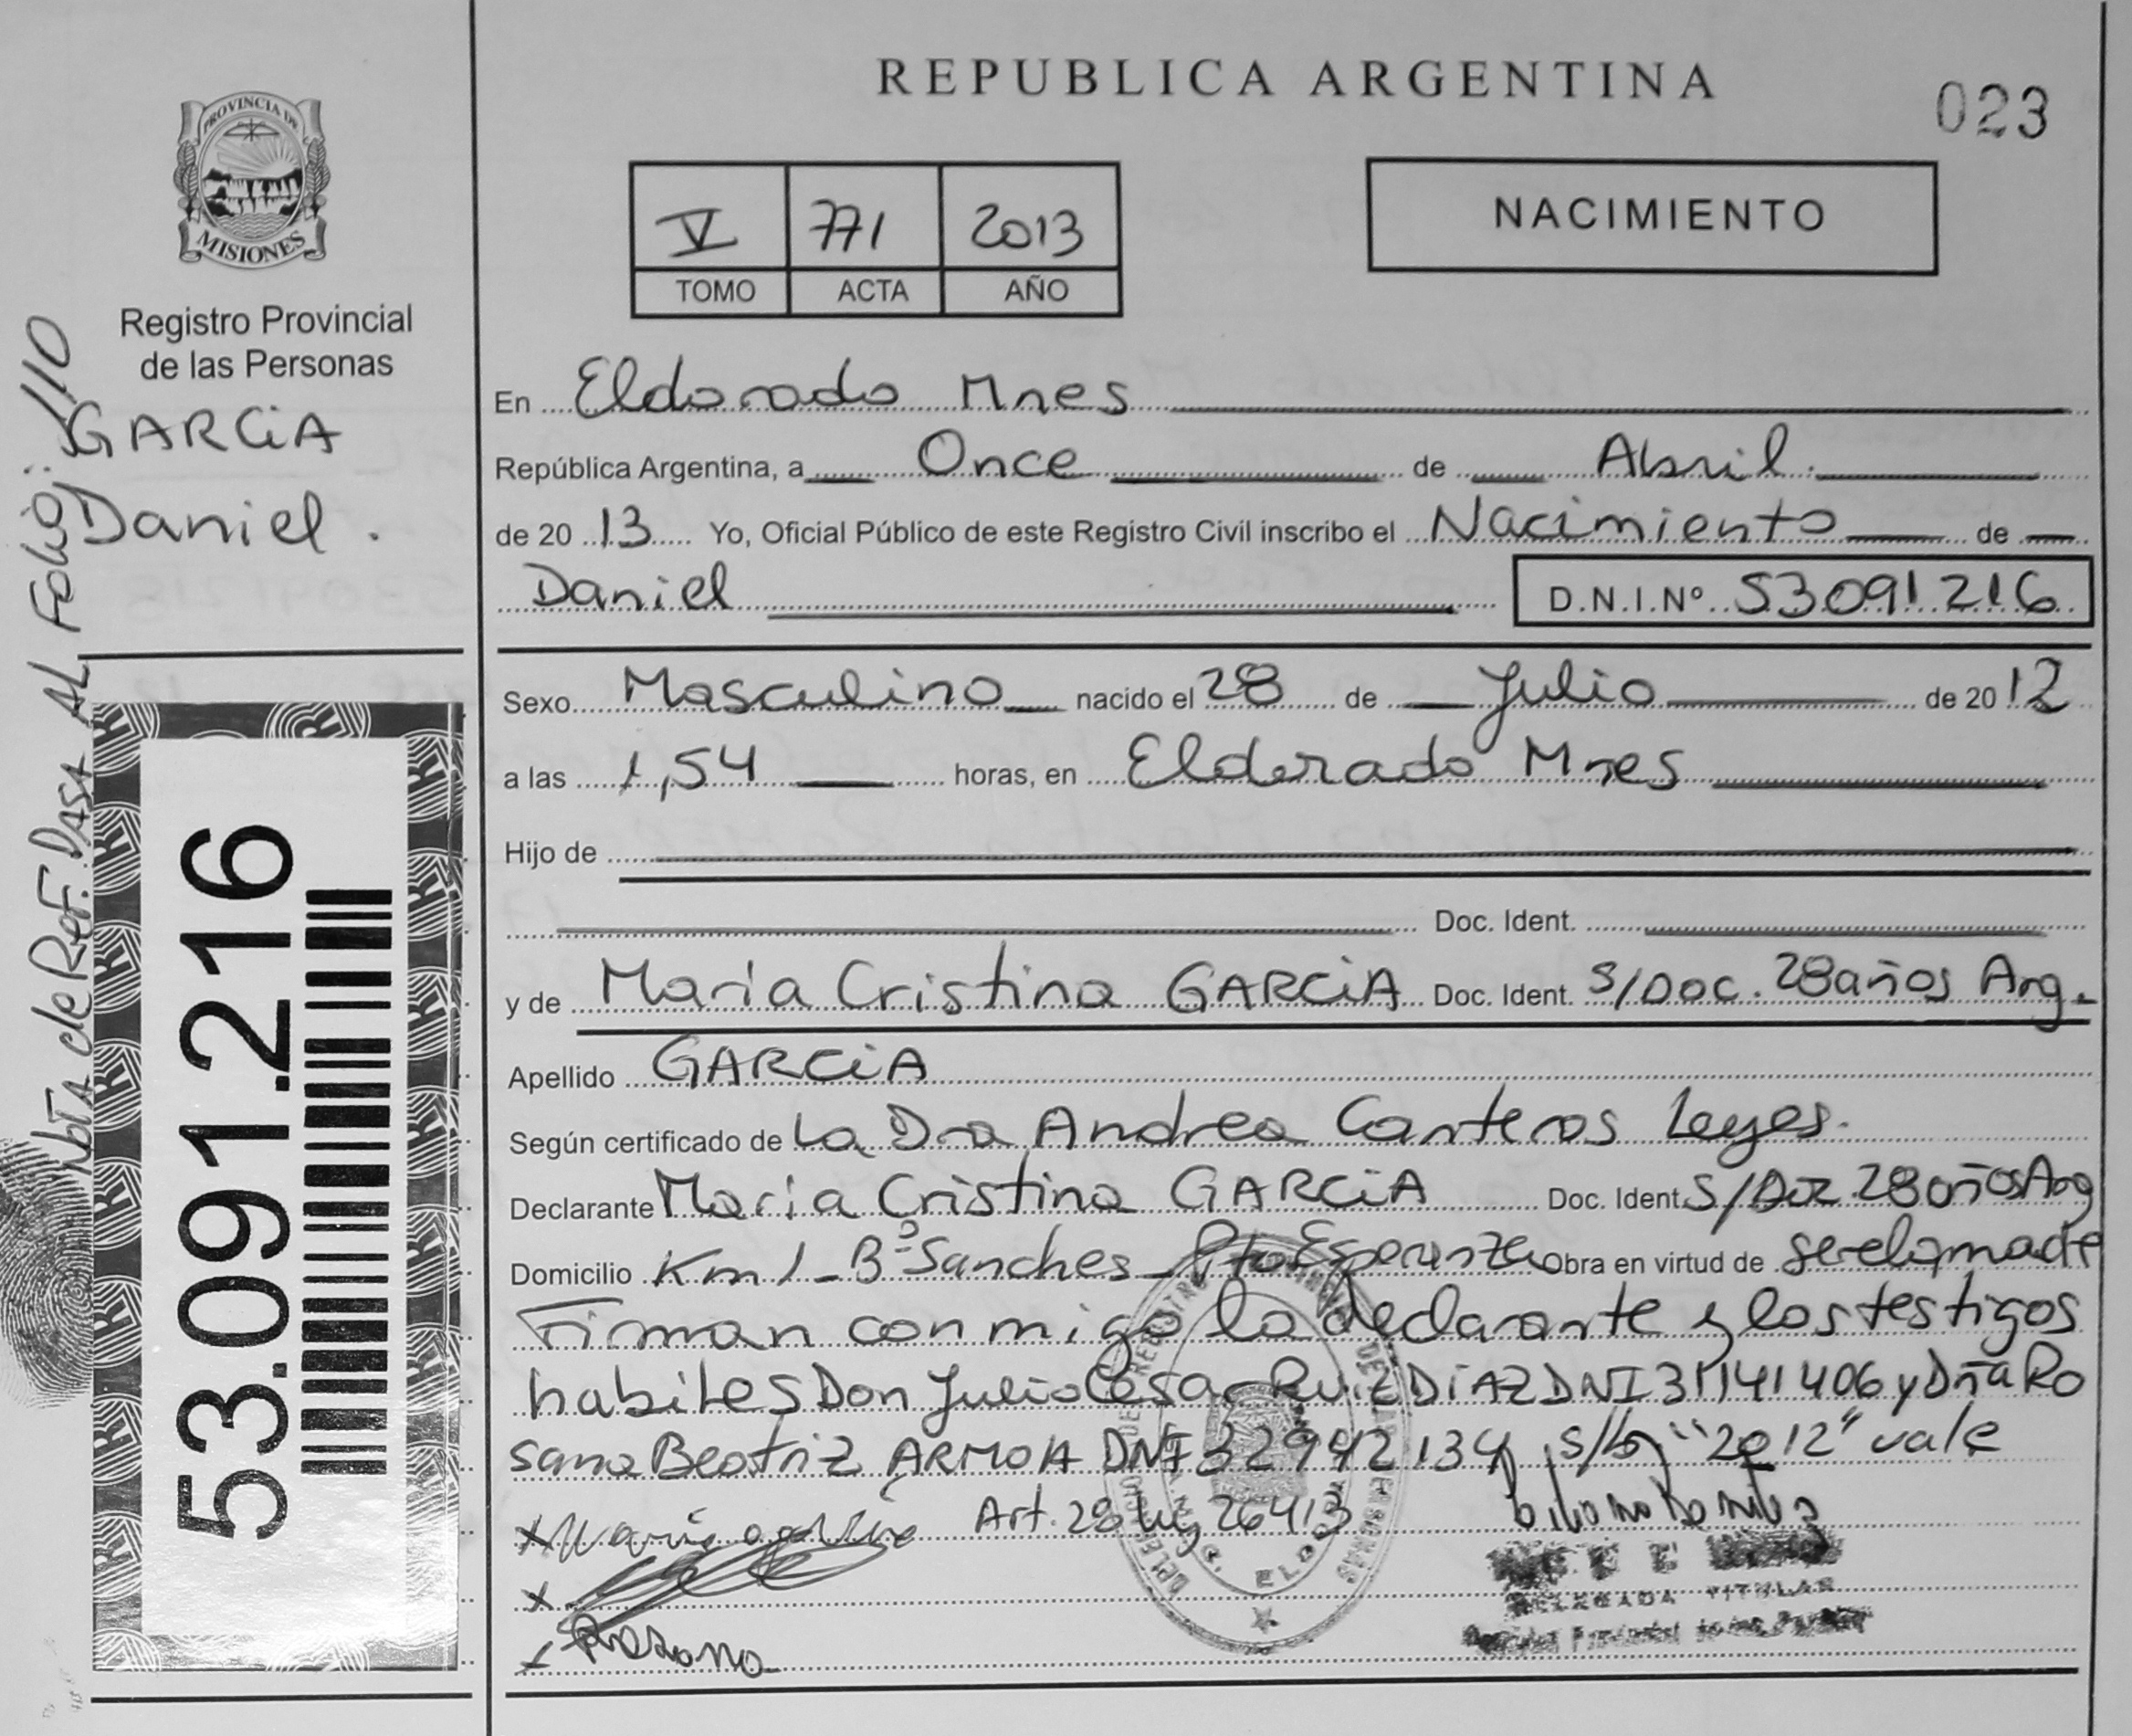 REPUBLICA ARGENTINA
023
PROVINCIA DE
MISIONES
Registro Provincial
de las Personas
GARCiA
Daniel.
Nota de Ref. Pasa AL Folio: 110
53.091.216
V 771 2013
TOMO ACTA AÑO
NACIMIENTO
En Eldorado Mnes
República Argentina, a Once de Abril.
de 20 13 Yo, Oficial Público de este Registro Civil inscribo el Nacimiento de
Daniel D.N.I.Nº 53091216
Sexo Masculino nacido el 28 de Julio de 20 12
a las 1,54 horas, en Eldorado Mnes
Hijo de
Doc. Ident.
y de Maria Cristina GARCiA Doc. Ident. S/Doc. 28 años Arg.
Apellido GARCiA
Según certificado de La Dra Andrea Canteros Leyes.
Declarante Maria Cristina GARCiA Doc. Ident. S/Doc 28 años Arg
Domicilio Km 1 - Bº Sanches - Pto Esperanza Obra en virtud de ser el a madre
Firman conmigo la declarante y los testigos
habiles Don Julio Cesar Ruiz DiAZ DNI 31141406 y Dña Ro
sana Beatriz ARMOA DNI 32942134 s/b "2012" vale
Art. 28 Ley 26413
Rosana
DELEGADA TITULAR